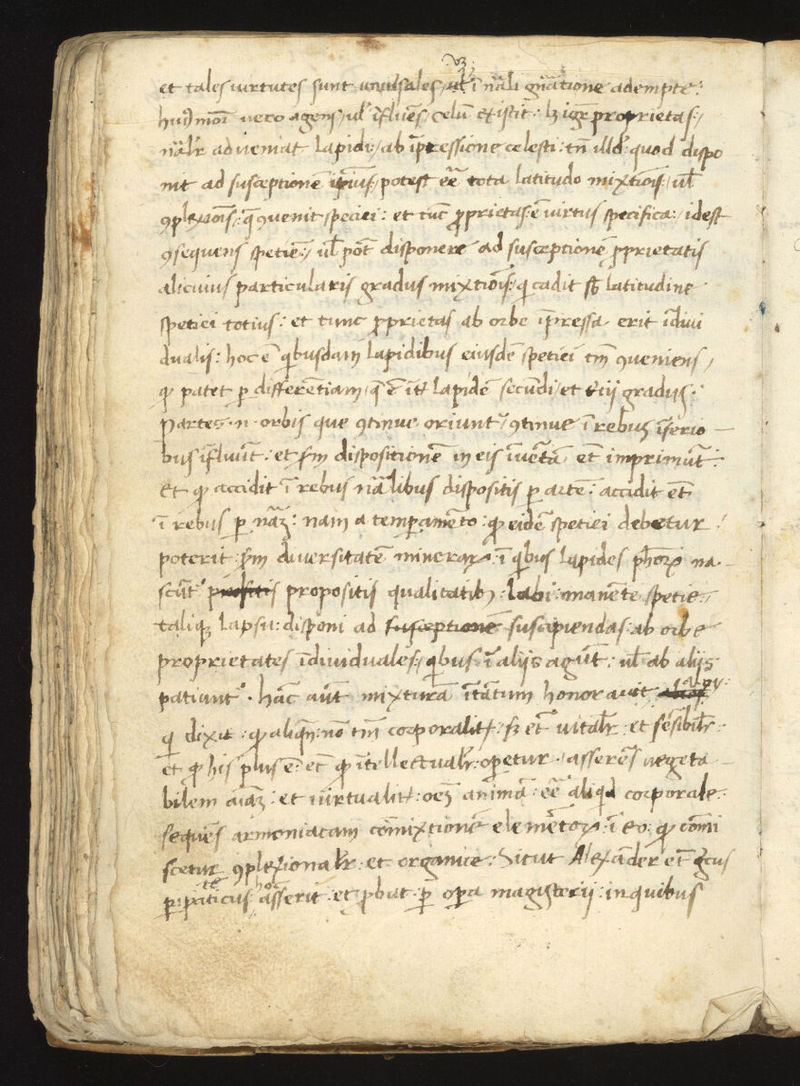 et tales virtutes sunt univ̄sales, ut ī nāli gn̄atione adempte:
huīmōi vero agens, ul' īfluēs, celū existit: lꝫ igr̄ proprietas,
nālr̄ adveniat lapidi, ab īpressione celesti: tn̄ illd quod dispo
nit ad susceptionē ipsius, potest eē̄ tota latitudo mixtiōis, ul'
ꝯplexiōis, q̄ ꝯvenit speciei: et tūc ꝓprietas ē virtus specifica, idest
ꝯsequens spetiē, ul' pōt disponere ad susceptionē ꝓprietatis
alicuius particularis gradus mixtiōis, qi cadit sb̄ latitudine
spetiei totius: et tunc ꝓprietas ab orbe īpressa erit īdivi
dualis: hoc ē qibusdam lapidibus eiusdē spetiei tm̄ ꝯveniens,
qꝫ patet ꝑ differentiam, q̄ ē īt̄ lapidē secundi et iij gradus.
Partes .n. orbis que ꝯtinue oriunt̄, ꝯtinue ī rebus īferio
bus īfluūt: et sm̄ dispositionē in eis īvētā, et̄ imprimūt:
Et qꝫ accidit ī rebus nālibus dispositis ꝑ artē: accidit et̄
ī rebus ꝑ nāꝫ: nam a temꝑamēto, qꝫ eidē spetiei debetur,
poterit sm̄ diversitatē minerarꝝ, ī qibus lapides ph̄orꝝ na
scūt̄ propositis qualitatibꝫ labi, manēte spetie,
taliqꝫ lapsu: disponi ad suscipiendas ab orbe
proprietates īdividuales, qibus ī aliis agūt: ul' ab aliis
patiunt̄. hāc aūt mixturā ītātum honoravit
qi dixit, qꝫ aliqn̄, nō tm̄ corporalit̄, sꝫ et̄ vitalr̄, et sēsibilr̄
et qꝫ his plus ē, et̄ qꝫ ītellectualr̄ operetur, asserēs vegeta
bilem aīaꝫ, et virtualit̄ oēꝫ animā: eē̄ aliqd corporale
sequēs armoniacam com̄ixtionē elemētorꝝ, ī eo, qꝫ com̄i
scetur ꝯplexionalr̄ et organice: Sicut Alexāder et̄ grecus
ꝑipateticus hoc asserit, et ꝓbat ꝑ opera magisterij, in quibus